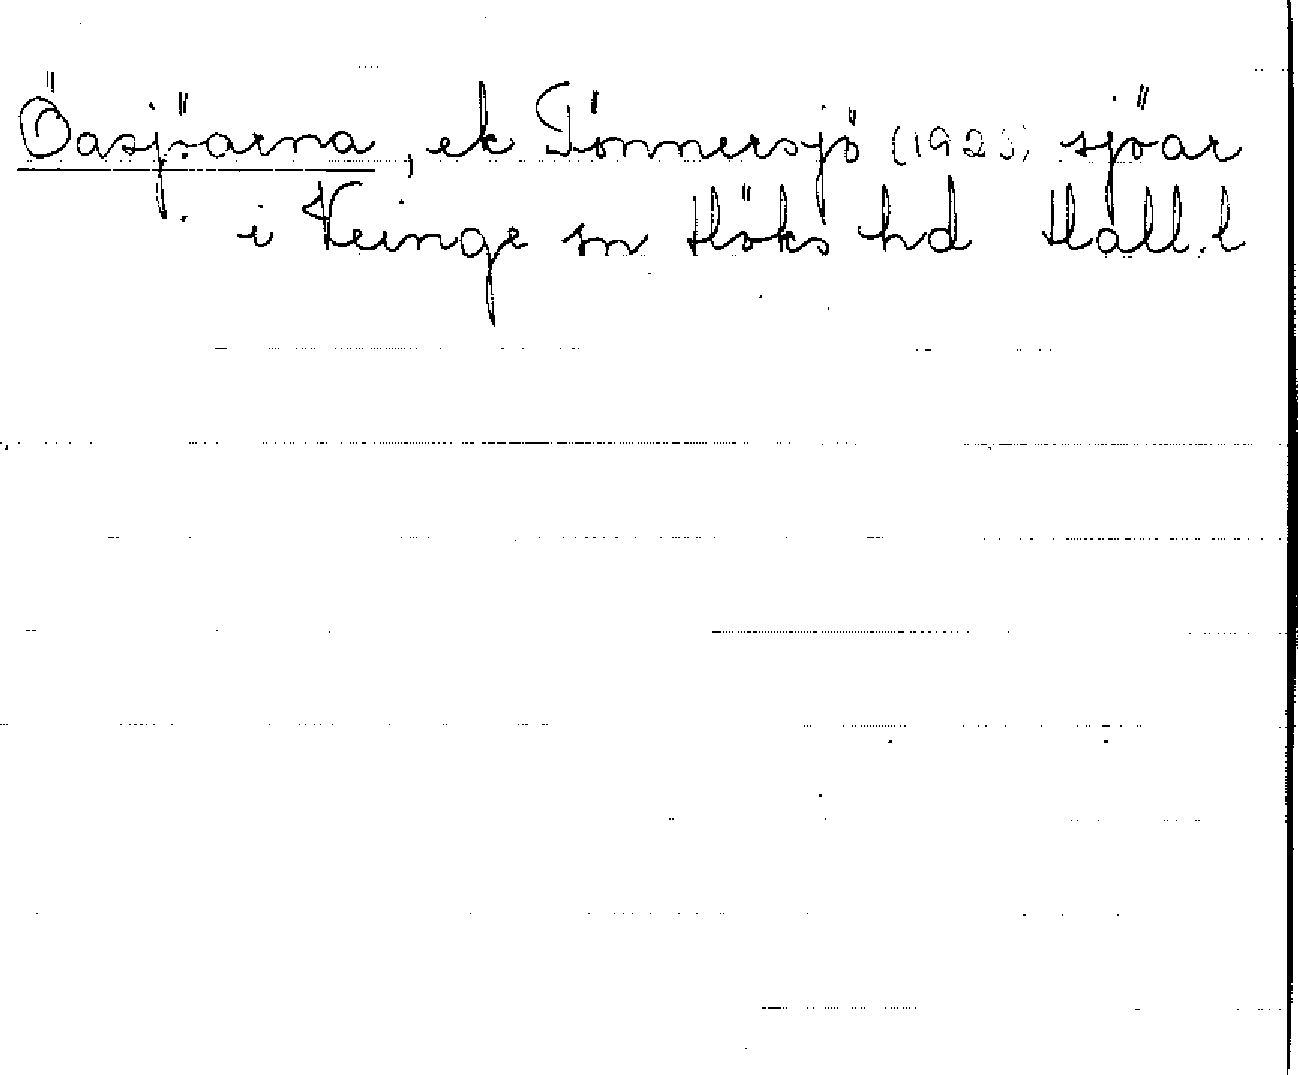 Öasjöarna, ek Tönnersjö (1923) sjöar
i Veinge sn Höks hd Hall. l